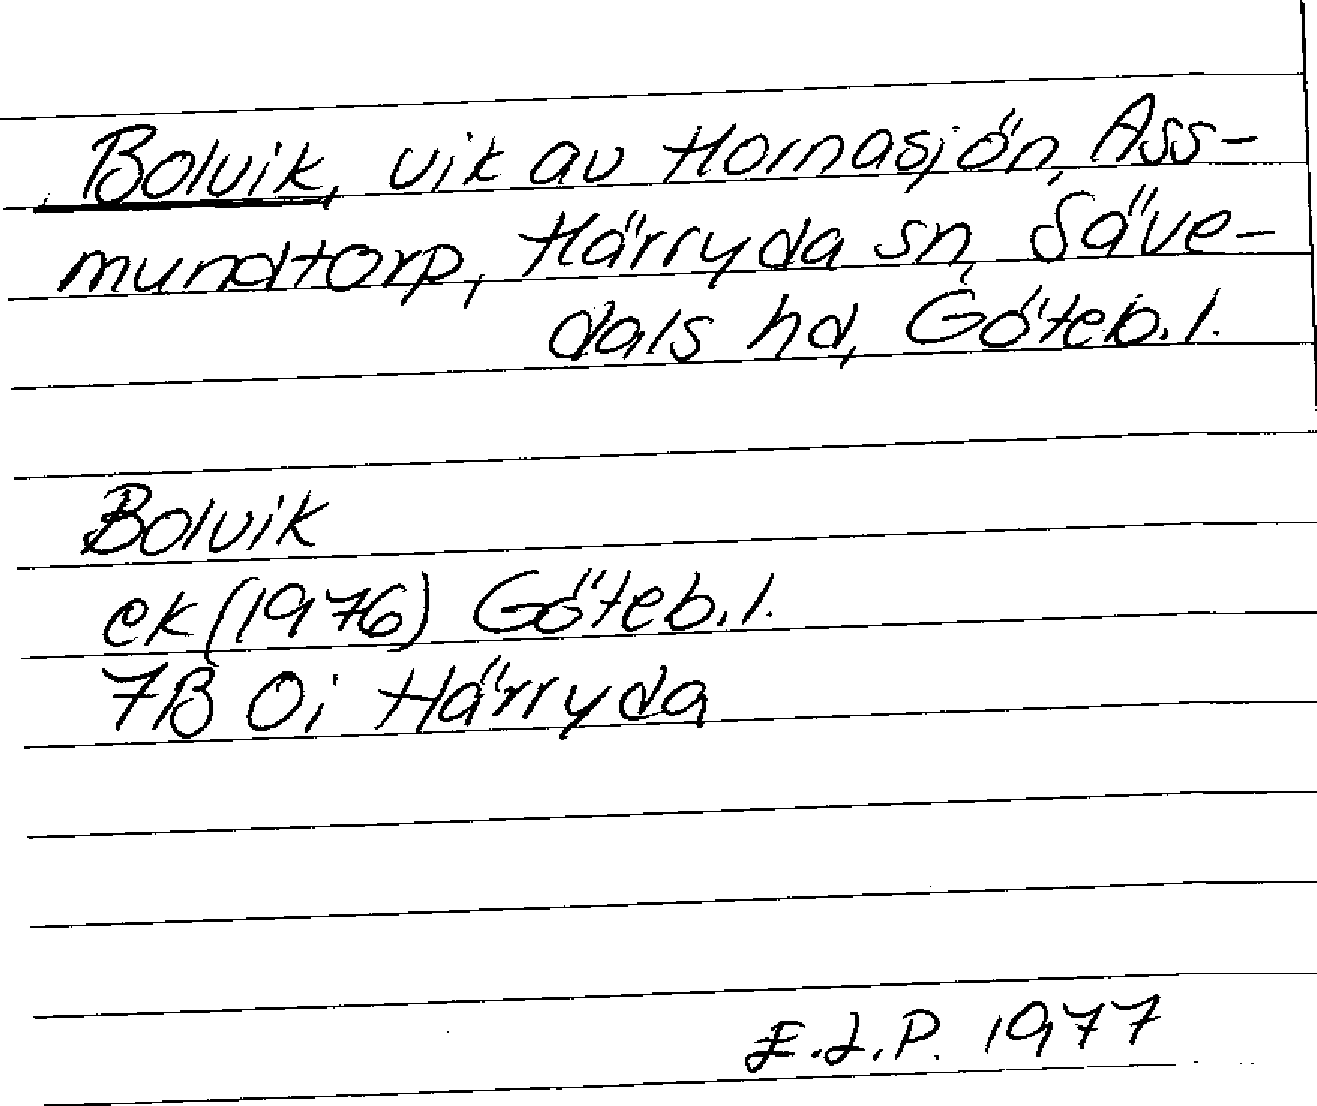 Bolvik, vik av Hornasjön, Ass-
mundtorp, Härryda sn, Säve-
dals hd, Göteb. l.
Bolvik
ek (1976) Göteb. l.
7B 0i Härryda
E.L.P. 1977